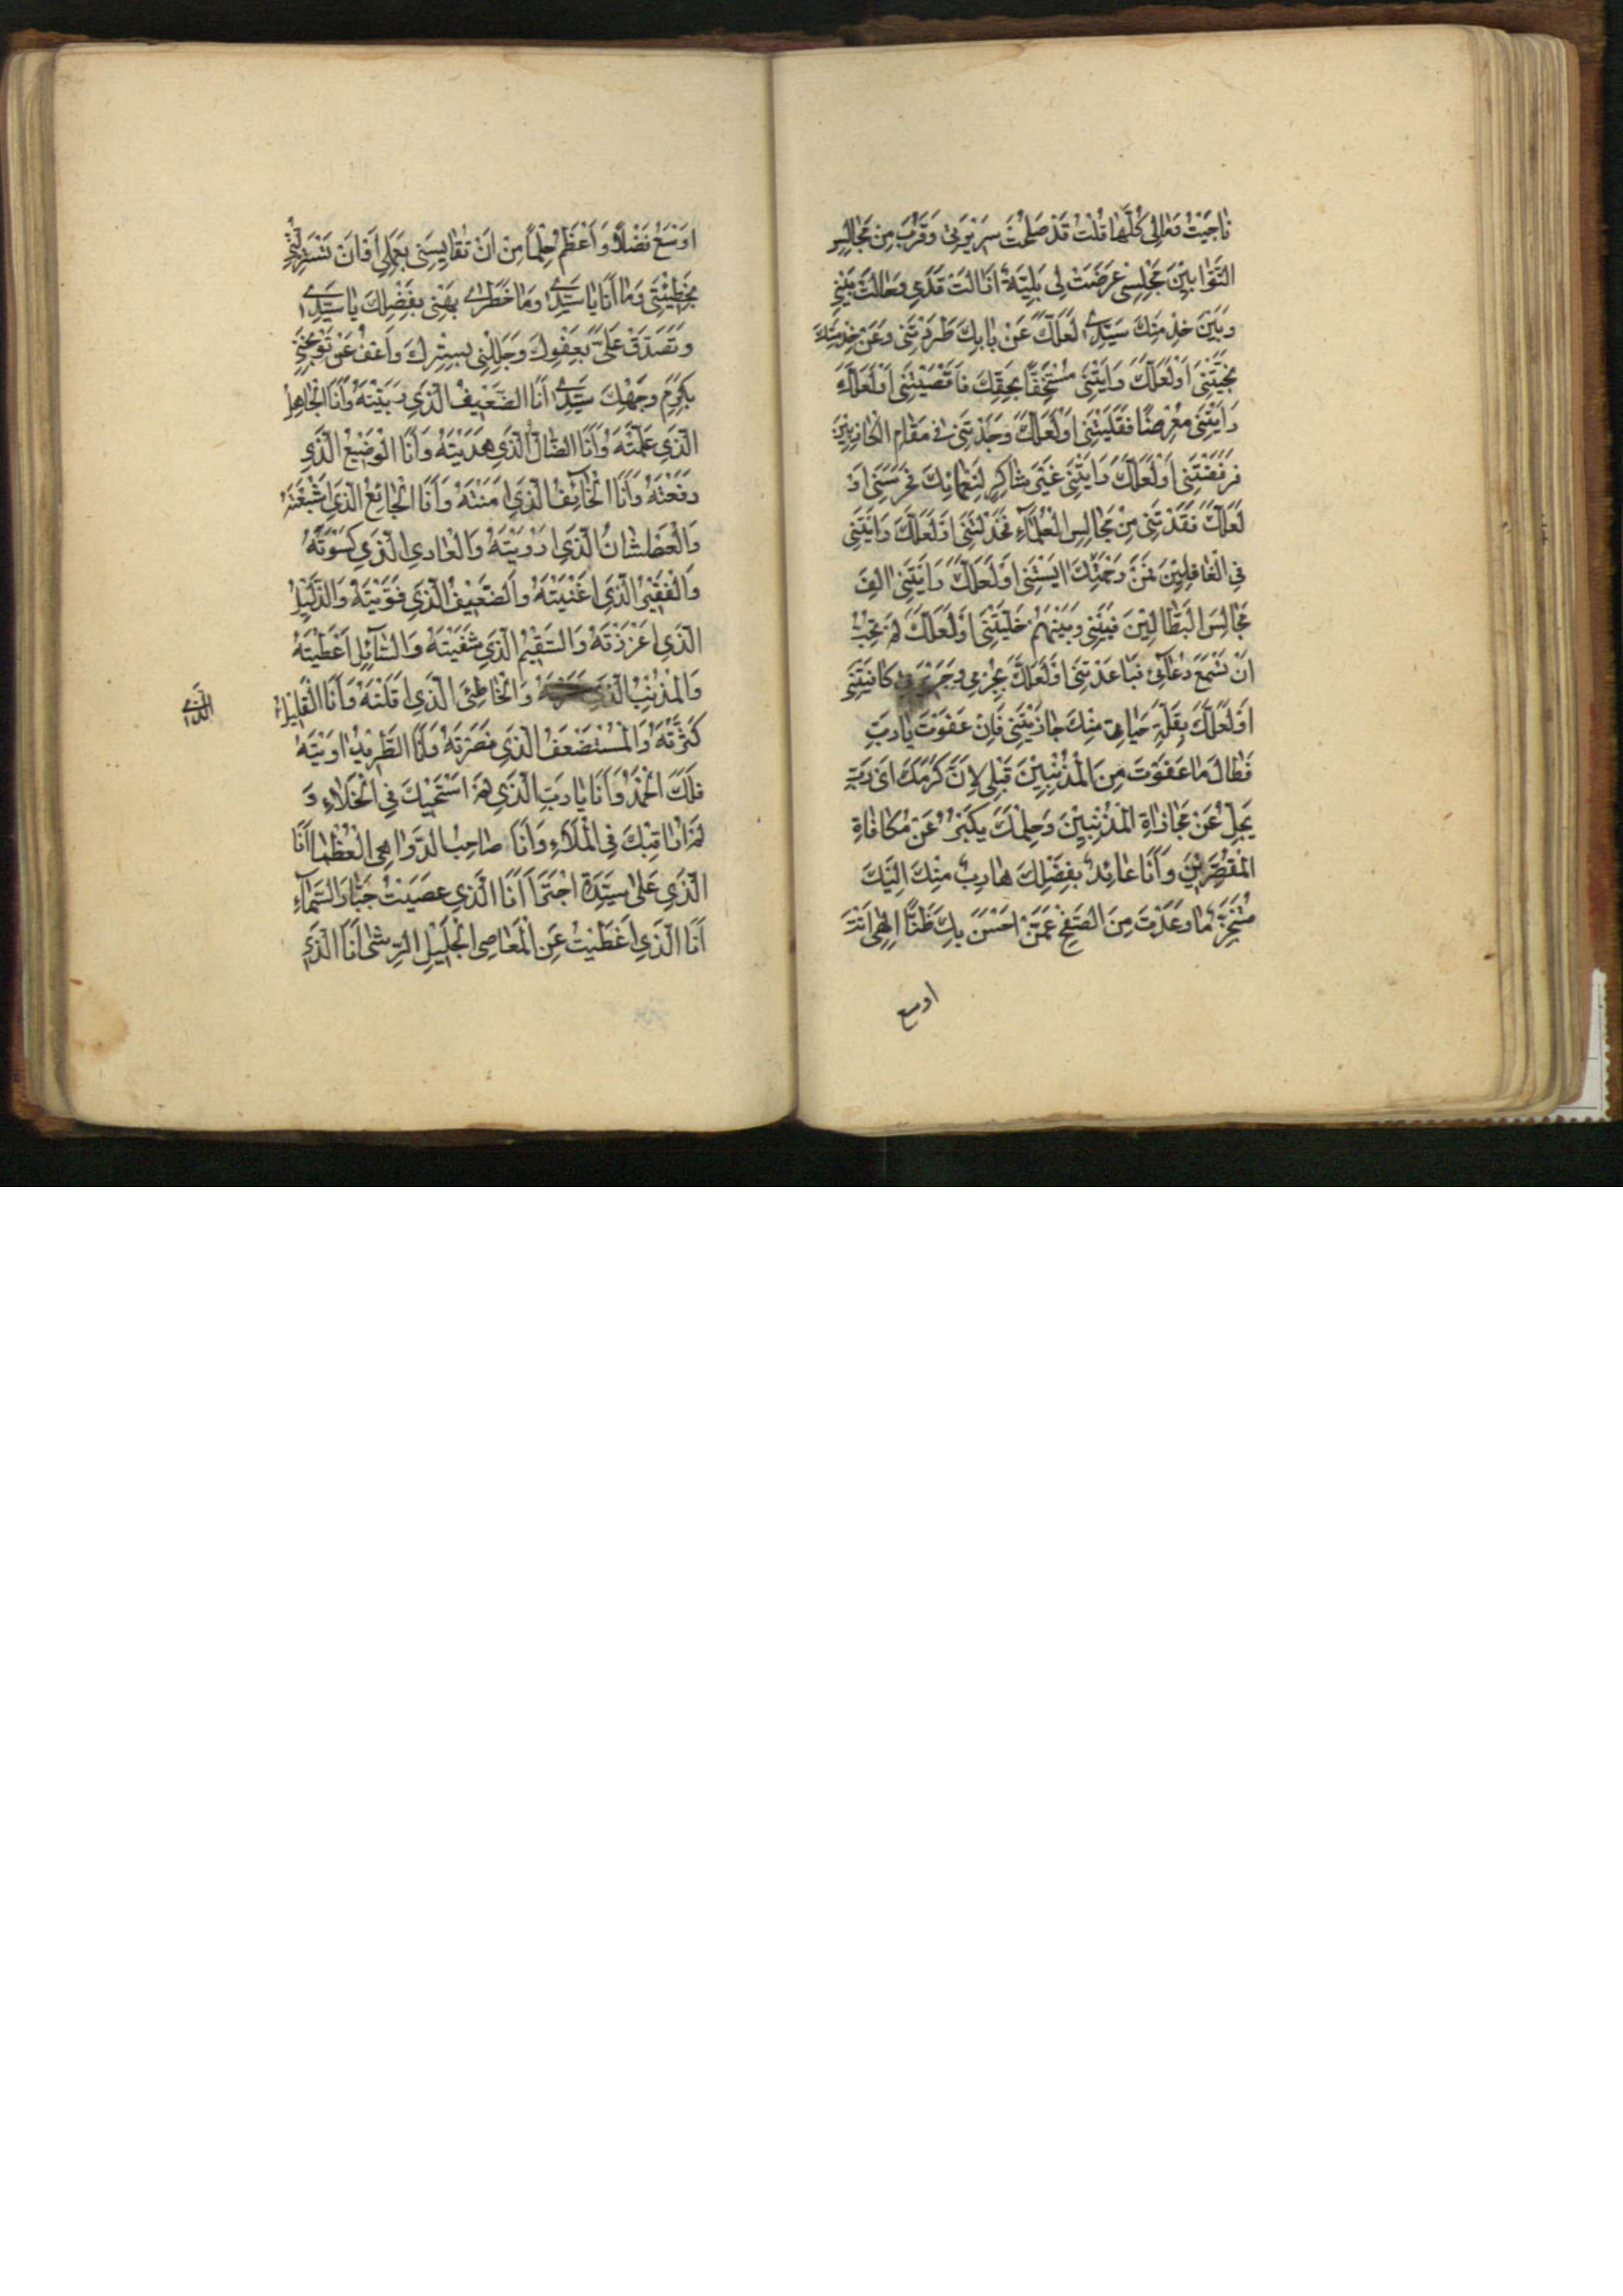 نٰاجَيْتُ وَمٰالِى كُلَّمٰا قُلْتُ قَدْ صَلُحَتْ سَرِيْرَتى وَقَرُبَ مِنْ مَجٰالِسِ
التَّوّٰابِيْنَ مَجْلِسِى عَرَضَتْ لِى بَلِيَّةٌ اَزٰالَتْ قَدَمِى وَحٰالَتْ بَيْنِى
وَبَيْنَ خِدْمَتِكَ سَيِّدِى لَعَلَّكَ عَنْ بٰابِكَ طَرَدْتَنِى وَعَنْ خِدْمَتِكَ
نَحَّيْتَنِى اَوْ لَعَلَّكَ رَاَيْتَنِى مُسْتَخِفًّا بِحَقِّكَ فَاَقْصَيْتَنِى اَوْ لَعَلَّكَ
رَاَيْتَنِى مُعْرِضًا فَقَلَيْتَنِى اَوْ لَعَلَّكَ وَجَدْتَنِى فِى مَقٰامِ الْكٰاذِبِيْنَ
فَرَفَضْتَنِى اَوْ لَعَلَّكَ رَاَيْتَنِى غَيْرَ شٰاكِرٍ لِنَعْمٰائِكَ فَحَرَمْتَنِى اَوْ
لَعَلَّكَ فَقَدْتَنِى مِنْ مَجٰالِسِ الْعُلَمٰاءِ فَخَذَلْتَنِى اَوْ لَعَلَّكَ رَاَيْتَنِى
فِى الْغٰافِلِيْنَ فَمِنْ رَحْمَتِكَ اٰيَسْتَنِى اَوْ لَعَلَّكَ رَاَيْتَنِى اٰلِفَ
مَجٰالِسِ الْبَطّٰالِيْنَ فَبَيْنِى وَبَيْنَهُمْ خَلَّيْتَنِى اَوْ لَعَلَّكَ لَمْ تُحِبَّ
اَنْ تَسْمَعَ دُعٰائِى فَبٰاعَدْتَنِى اَوْ لَعَلَّكَ بِجُرْمِى وَجَرِيْرَتِى كٰافَيْتَنِى
اَوْ لَعَلَّكَ بِقِلَّةِ حَيٰائِى مِنْكَ جٰازَيْتَنِى فَاِنْ عَفَوْتَ يٰا رَبِّ
فَطٰالَ مٰا عَفَوْتَ مِنَ الْمُذْنِبِيْنَ قَبْلِى لِاَنَّ كَرَمَكَ اَىْ رَبِّ
يَجِلُّ عَنْ مُجٰازٰاةِ الْمُذْنِبِيْنَ وَحِلْمَكَ يَكْبُرُ عَنْ مُكٰافٰاةِ
الْمُقَصِّرِيْنَ وَاَنَا عٰائِذٌ بِفَضْلِكَ هٰارِبٌ مِنْكَ اِلَيْكَ
مُتَنَجِّزٌ مٰا وَعَدْتَ مِنَ الصَّفْحِ عَمَّنْ اَحْسَنَ بِكَ ظَنًّا اِلٰهِى اَنْتَ
اوسع
اَوْسَعُ فَضْلًا وَاَعْظَمُ حِلْمًا مِنْ اَنْ تُقٰايِسَنِى بِعَمَلِى اَوْ اَنْ تَسْتَزِلَّنِى
بِخَطِيْئَتِى وَمٰا اَنَا يٰا سَيِّدِى وَمٰا خَطَرِى هَبْنِى بِفَضْلِكَ يٰا سَيِّدِى
وَتَصَدَّقْ عَلَىَّ بِعَفْوِكَ وَجَلِّلْنِى بِسِتْرِكَ وَاعْفُ عَنْ تَوْبِيْخِى
بِكَرَمِ وَجْهِكَ سَيِّدِى اَنَا الضَّعِيْفُ الَّذِى رَبَّيْتَهُ وَاَنَا الْجٰاهِلُ
الَّذِى عَلَّمْتَهُ وَاَنَا الضّٰالُّ الَّذِى هَدَيْتَهُ وَاَنَا الْوَضِيْعُ الَّذِى
رَفَعْتَهُ وَاَنَا الْخٰائِفُ الَّذِى اٰمَنْتَهُ وَاَنَا الْجٰائِعُ الَّذِى اَشْبَعْتَهُ
وَالْعَطْشٰانُ الَّذِى اَرْوَيْتَهُ وَالْعٰارِى الَّذِى كَسَوْتَهُ
وَالْفَقِيْرُ الَّذِى اَغْنَيْتَهُ وَالضَّعِيْفُ الَّذِى قَوَّيْتَهُ وَالذَّلِيْلُ
الَّذِى اَعْزَزْتَهُ وَالسَّقِيْمُ الَّذِى شَفَيْتَهُ وَالسّٰائِلُ اَعْطَيْتَهُ
وَالْمُذْنِبُ الَّذِى سَتَرْتَهُ وَالْخٰاطِئُ الَّذِى اَقَلْتَهُ وَاَنَا الْقَلِيْلُ
الَّذِى
كَثَّرْتَهُ وَالْمُسْتَضْعَفُ الَّذِى نَصَرْتَهُ وَاَنَا الطَّرِيْدُ اٰوَيْتَهُ
فَلَكَ الْحَمْدُ وَاَنَا يٰا رَبِّ الَّذِى لَمْ اَسْتَحْيِكَ فِى الْخَلَاءِ وَ
لَمْ اُرٰاقِبْكَ فِى الْمَلَاءِ وَاَنَا صٰاحِبُ الدَّوٰاهِى الْعُظْمٰى اَنَا
الَّذِى عَلٰى سَيِّدِهِ اجْتَرٰى اَنَا الَّذِى عَصَيْتُ جَبّٰارَ السَّمٰاءِ
اَنَا الَّذِى اَعْطَيْتُ عَنِ الْمَعٰاصِى الْجَلِيْلِ الرِّشٰى اَنَا الَّذِى